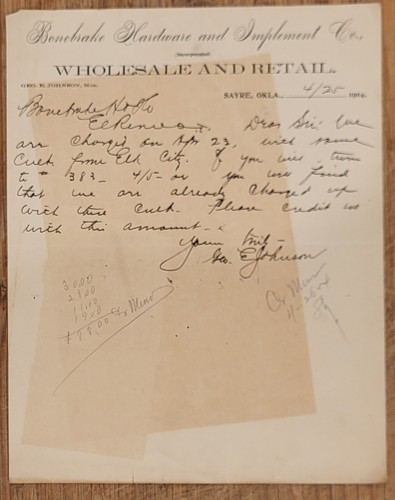 Bonebrake Hardware and Implement Co.,
Incorporated
WHOLESALE AND RETAIL.
GEO. E. JOHNSON, MGR.
SAYRE, OKLA., 4/25 190
Bonebrake H & Co
El Reno Dear Sir: We
are charged on Apr 23, with some
Cult. from Elk City. If you will turn
to # 383 - 4/5 - you will find
that we are already charged up
with these Cult. Please credit us
with this amount.
Yours truly
Geo. E Johnson
30.00
28.00
11.00
19.00
88.00 Cr Memo
Cr Memo